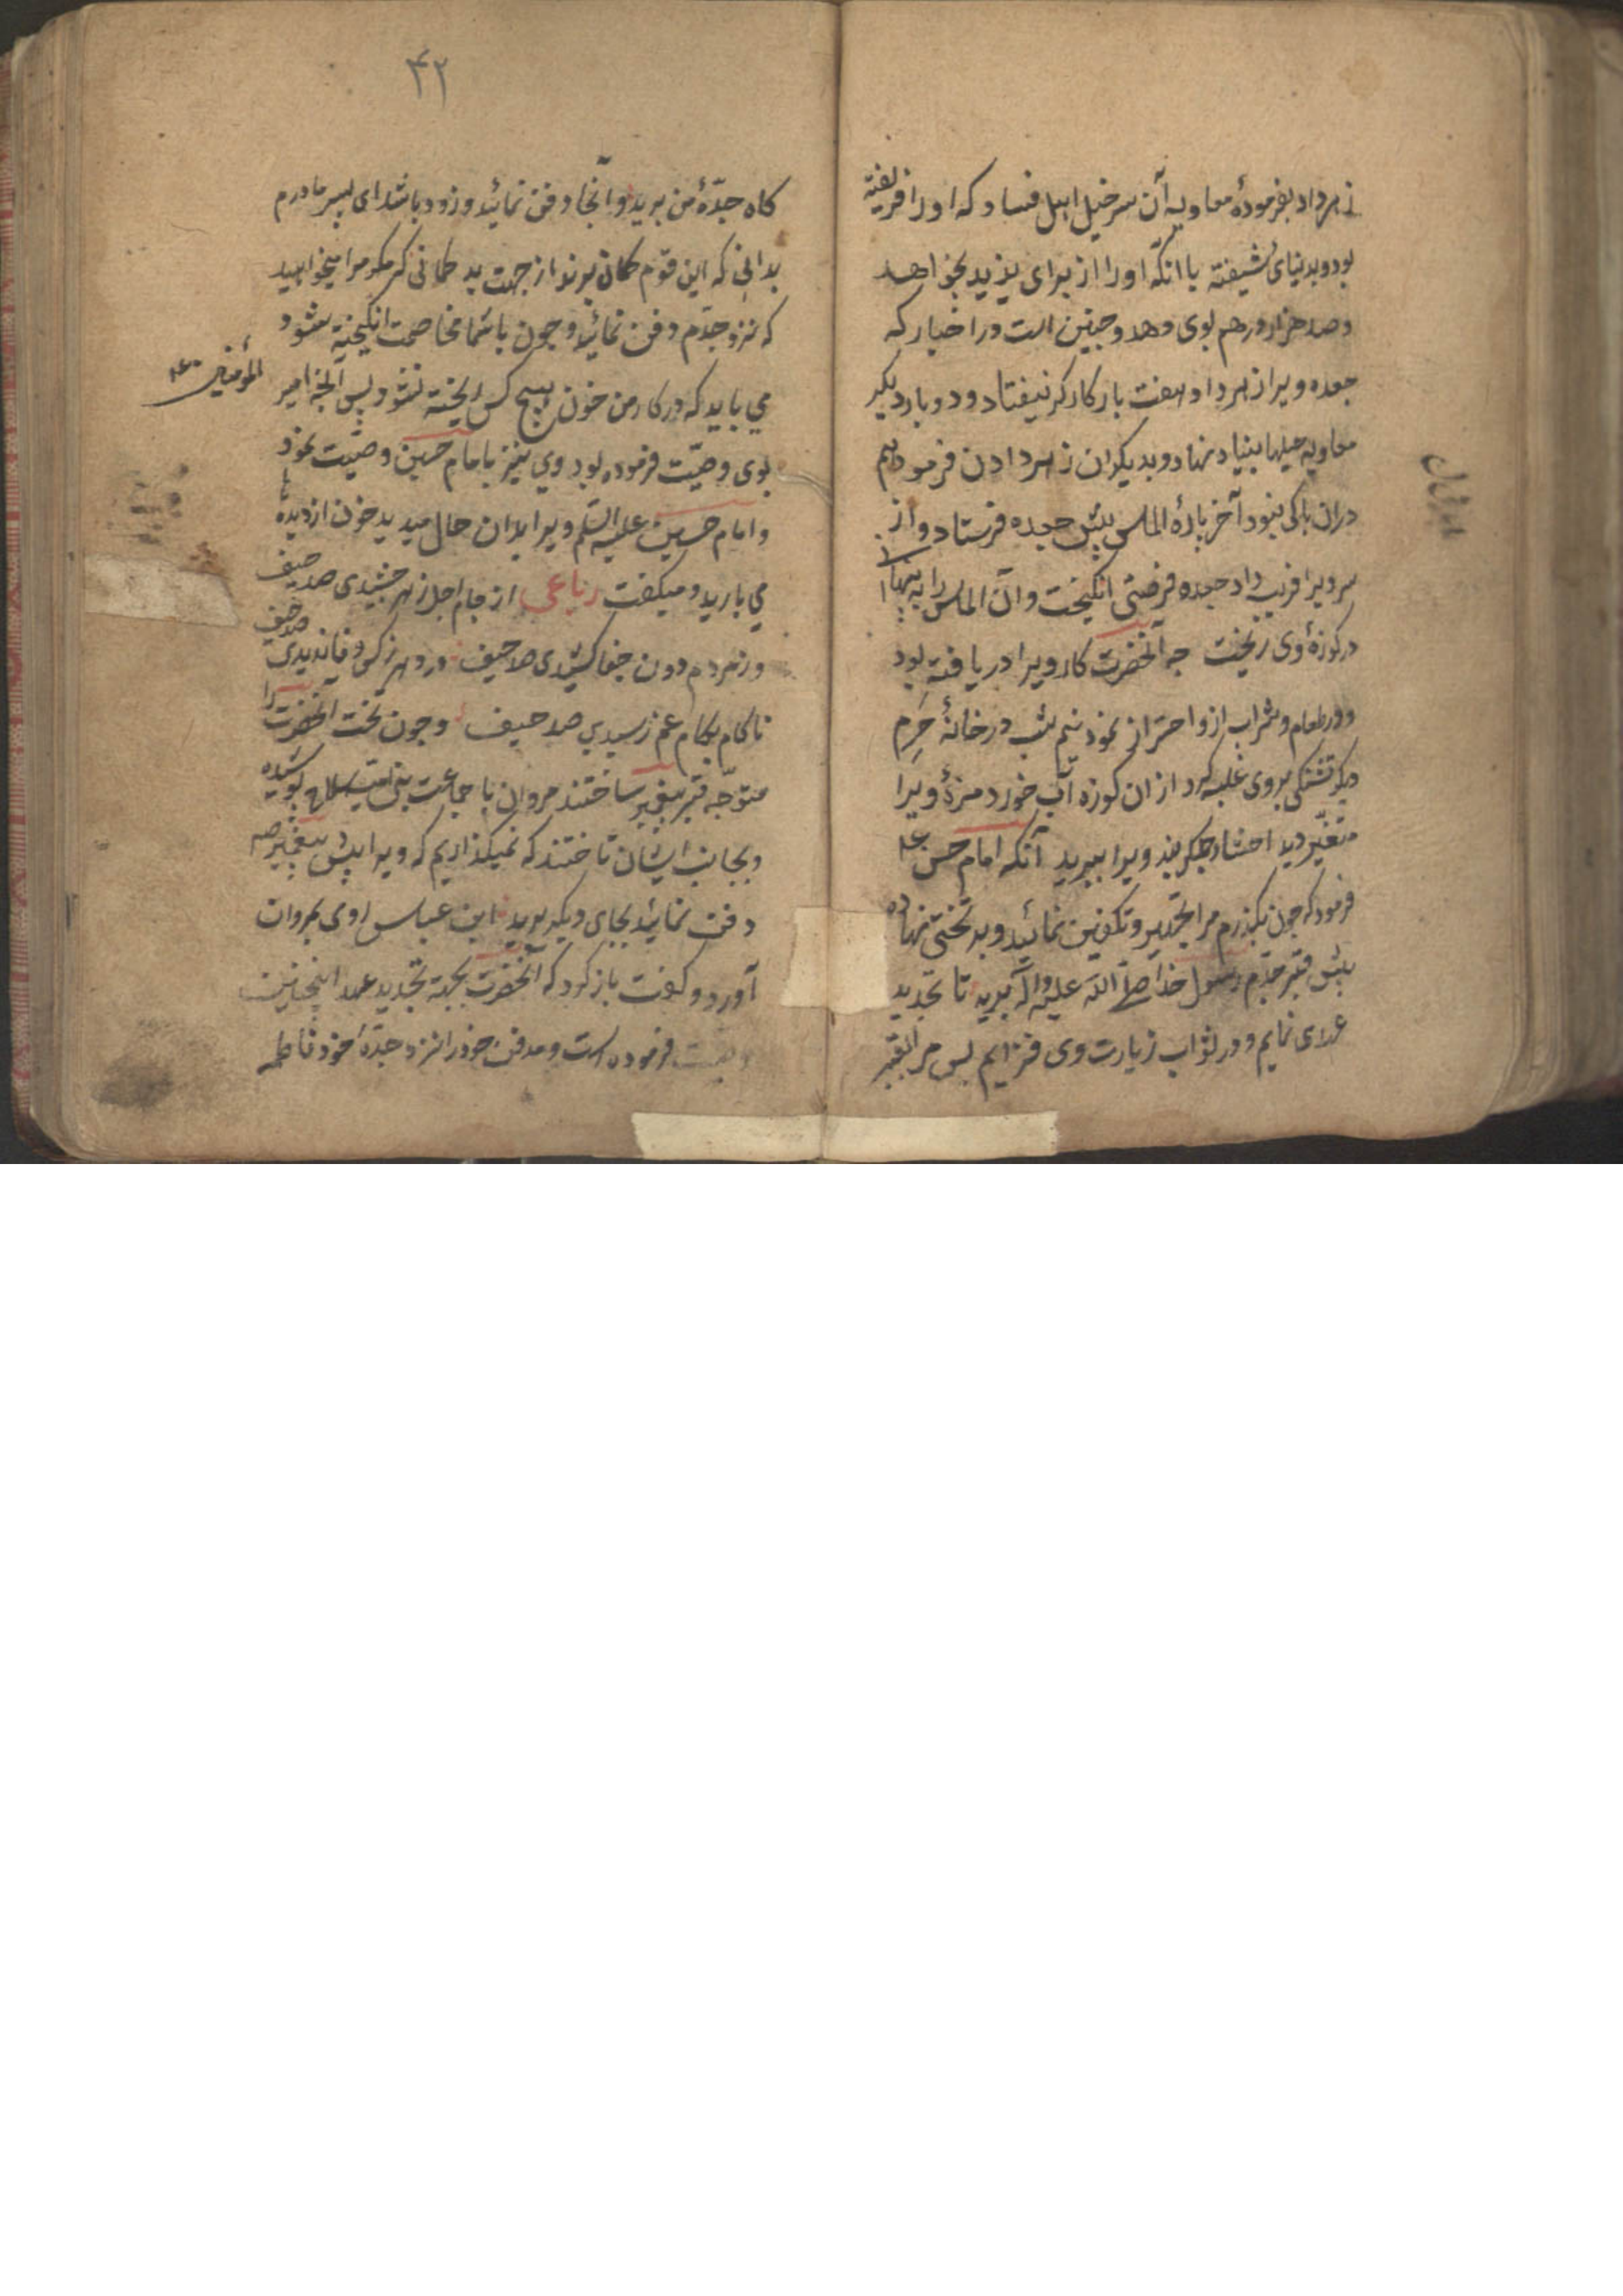 زهر داد بفرمودهٔ معاویه آن سرخیل اهل فساد که او را فریفته
بود و بدنیای شیفته با انکه او را از برای یزید بخواهد
و صد هزار درهم بوی دهد و چنین است در اخبار که
جعده ویرا زهر داد هفت بار کارکر نیفتاد و دو بار دیکر
معاویه حیلها بنیاد نهاد و بدیکران زهر دادن فرمود هم
دران باکی نبود آخر پارهٔ الماس پیش جعده فرستاد و از
سر ویرا فریب داد جعده فرصتی انکیخت و آن الماس را پنهان
در کوزهٔ وی ریخت چه آنحضرت کار ویرا دریافته بود
و در طعام و شراب ازو احتراز نمود نیم شب در خانهٔ حرم
دیکر تشنکی بروی غلبه کرد از ان کوزه آب خورد مزهٔ ویرا
متغیّر دید احشاء جکر بند ویرا ببرید آنکه امام حسن ع
فرمود که چون بکذرم مرا تجهیز و تکفین نمائید و بر تختی نهاده
پیش قبر جدّم رسول خدا صلّی اللّه علیه و آله برید تا تجدید
عهدی نمایم و در ثواب زیارت وی فزایم پس مرا بقبر
۴۲
کاه جدّهٔ من برید و آنجا دفن نمائید و زود باشد ای پسر مادرم
بدانی که این قوم کمان برند از جهت بد کمانی که مکر مرا میخواهید
که نزد جدّم دفن نمائید و چون با شما مخاصمت انکیخته شود
می باید که در کار من خون هیچ کس ریخته نشود پس آنچه امیر
المؤمنین ع
بوی وصیّت فرموده بود وی نیز بامام حسین وصیّت نمود
و امام حسین علیه السّلم ویرا بدان حال میدید خون از دیده
می بارید و میکفت رباعی از جام اجل زهر چشیدی صد حیف
وز مردم دون جفا کشیدی صد حیف در دهر ز کس وفا ندیدی صد حیف
ناکام بکام غم رسیدی صد حیف و چون تخت آنحضرت را
متوجّه قبر پیغمبر ساختند مروان با جماعت بنی امیّه سلاح پوشیده
و بجانب ایشان تاختند که نمیکذاریم که ویرا پیش پیغمبر ص
دفن نمائید بجای دیکر برید ابن عباس روی بمروان
آورد و کفت باز کرد که آنحضرت بجهة تجدید عهد اینچنین
وصیت فرموده است و مدفن خود را نزد جدّهٔ خود فاطمه